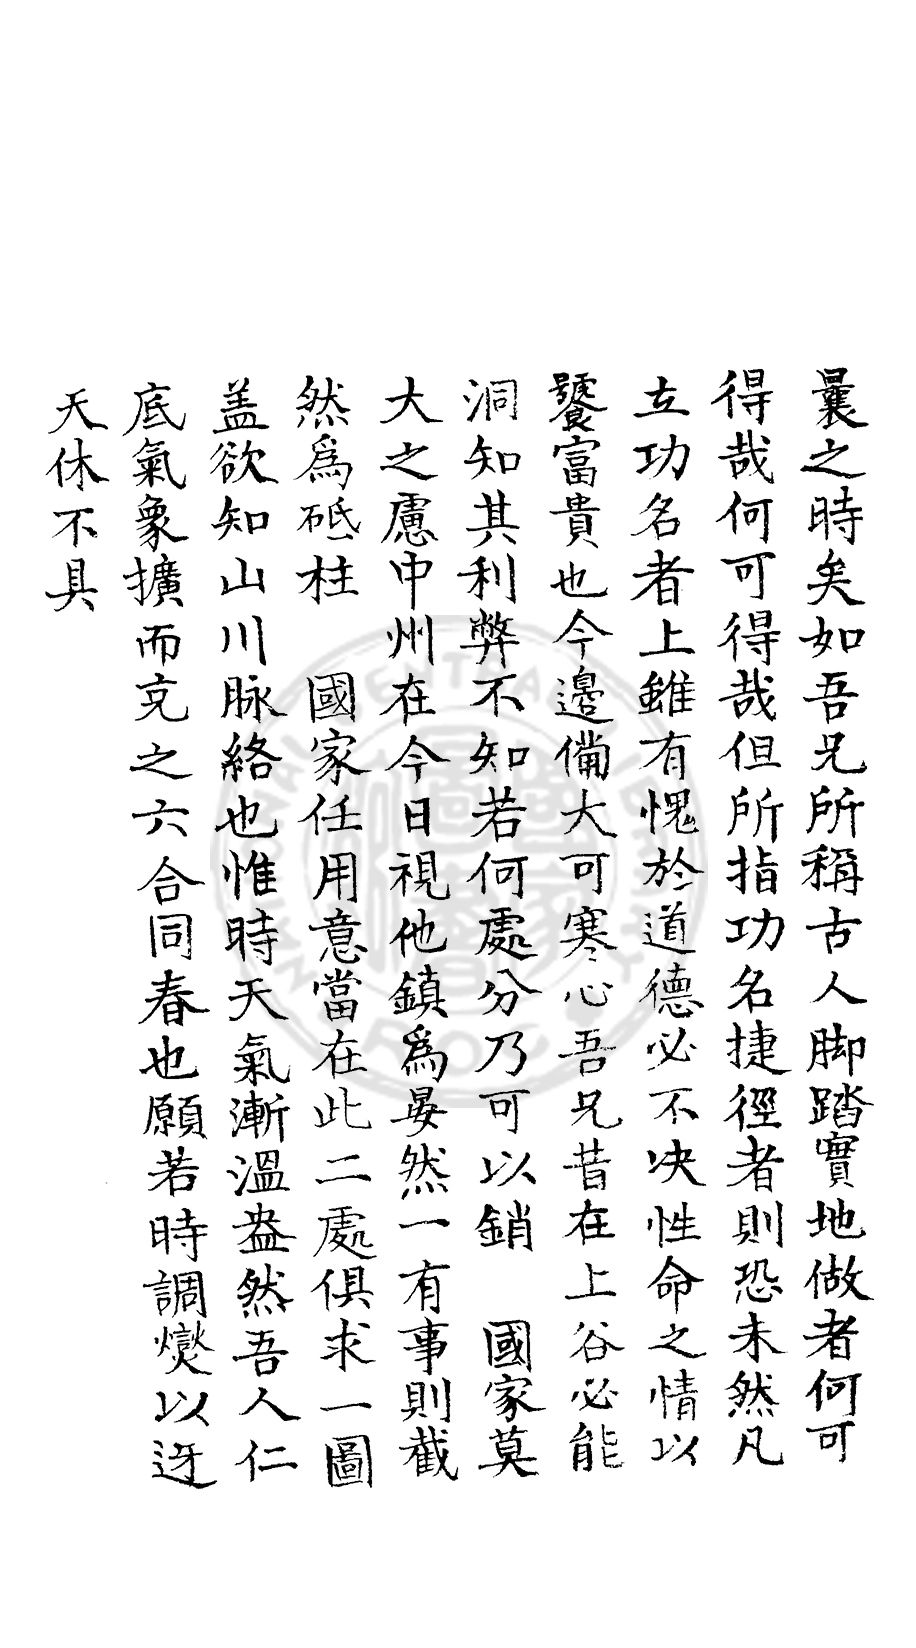 曩之時矣如吾兄所稱古人脚踏實地做者何可
得哉何可得哉但所指功名捷徑者則恐未然凡
立功名者上雖有愧於道德必不决性命之情以
饕富貴也今邊備大可寒心吾兄昔在上谷必能
洞知其利弊不知若何處分乃可以銷 國家莫
大之慮中州在今日視他鎮爲晏然一有事則截
然爲砥柱 國家任用意當在此二處俱求一圖
盖欲知山川脉絡也惟時天氣漸溫盎然吾人仁
底氣象擴而克之六合同春也願若時調爕以迓
天休不具